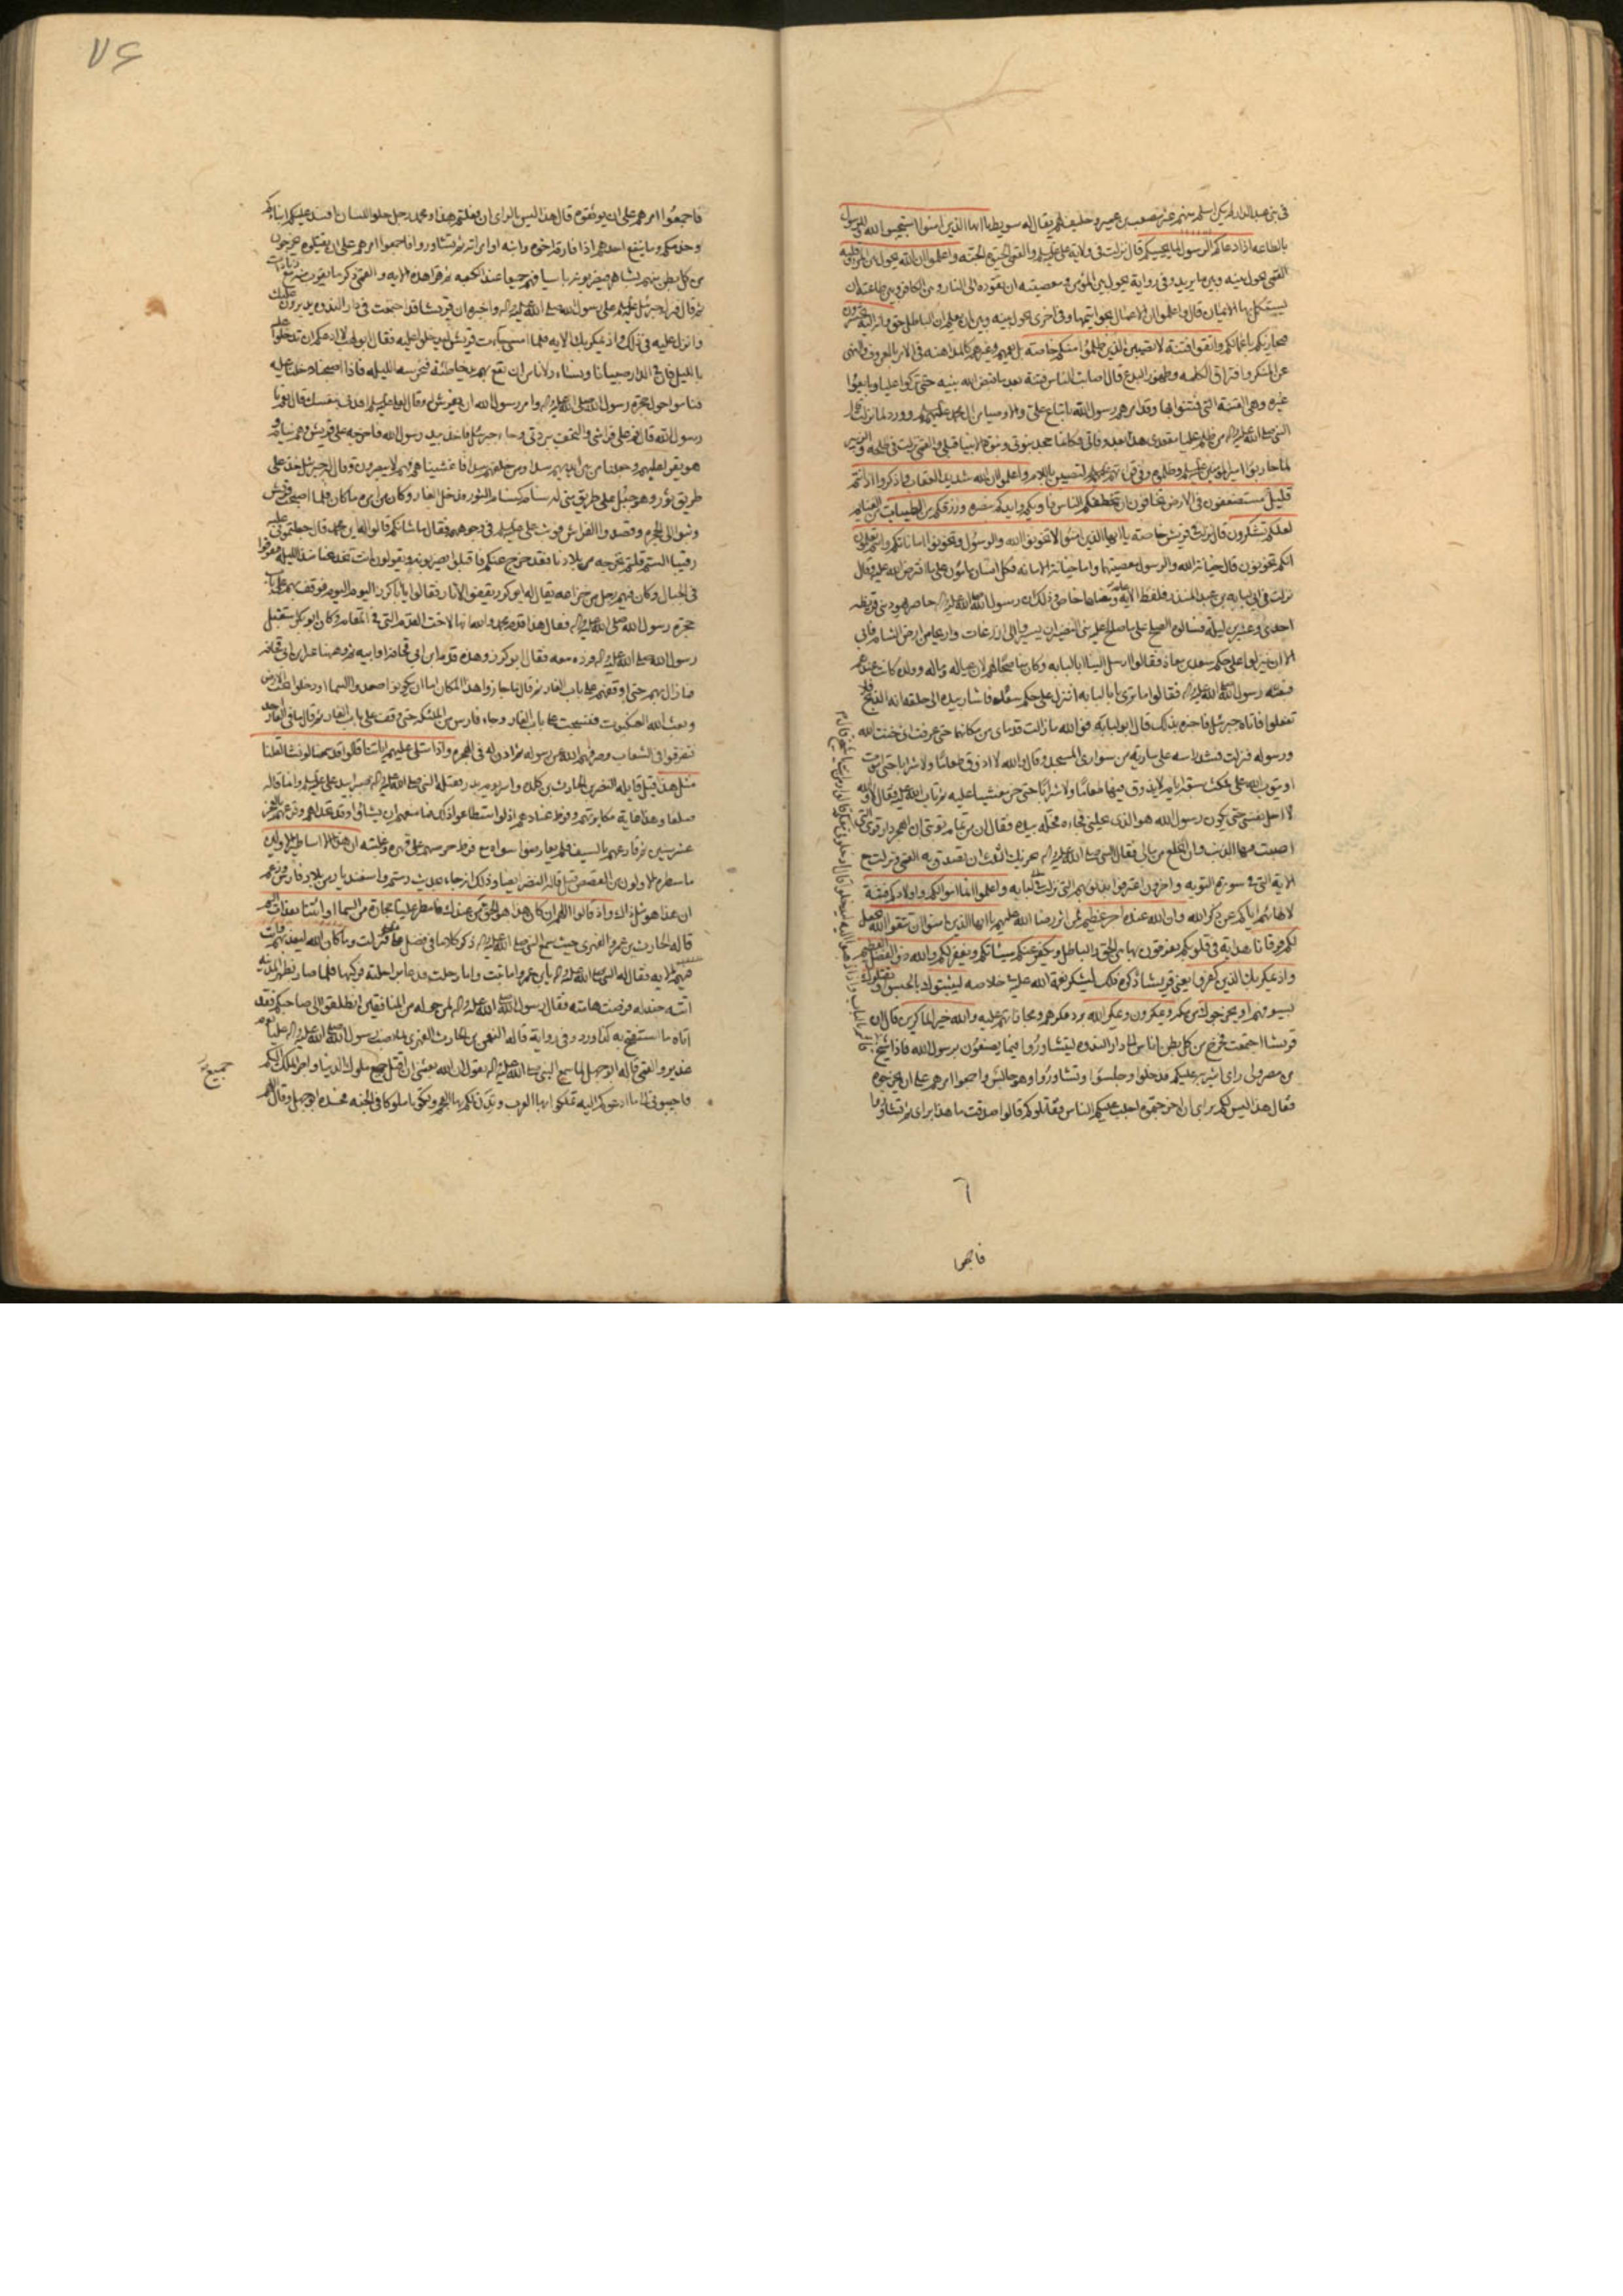 في بني عبد الدار لم يكن اسلم منهم غير مصعب بن عمير وحليف لهم يقال له سويط يا ايها الذين امنوا استجيبوا لله وللرسول
بالطاعه اذا دعاكم الرسول لما يحييكم قال نزلت في ولاية علي عليه السلم والقمي الحيوة الجنة واعلموا ان الله يحول بين المرء وقلبه
القمي يحول بينه وبين ما يريد وفي رواية يحول بين المؤمن ومعصيته ان تقوده الى النار وبين الكافر وبين طاعته ان
يستكمل بها الايمان قال واعلموا ان الاعمال بخواتيمها وفي اخرى يحول بينه وبين ان يعلم ان الباطل حق وانه اليه تحشرون
فيجازيكم باعمالكم واتقوا فتنة لا تصيبن الذين ظلموا منكم خاصة بل تعمهم وغيرهم كالمداهنه في الامر بالمعروف والنهى
عن المنكر وافتراق الكلمه وظهور البدع قال اصابت الناس فتنة بعد ما قبض الله نبيه حتى تركوا عليا وبايعوا
غيره وهي الفتنة التي فتنوا بها وقد امرهم رسول الله باتباع علي والاوصياء من ال محمد عليهم السلم وورد لما نزلت قال
النبي صلى الله عليه واله من ظلم عليا مقعدي هذا بعد وفاتي فكانما جحد نبوتي ونبوة الانبياء قبلي والقمي نزلت في طلحه والزبير
لما حاربوا امير المؤمنين عليه السلم وظلموه وفي قراءتهم عليهم السلم لتصيبن باللام واعلموا ان الله شديد العقاب واذكروا اذ انتم
قليل مستضعفون في الارض تخافون ان يتخطفكم الناس فاويكم وايدكم بنصره ورزقكم من الطيبات من الغنايم
لعلكم تشكرون قال نزلت في قريش خاصة يا ايها الذين امنوا لا تخونوا الله والرسول وتخونوا اماناتكم وانتم تعلمون
انكم تخونون قال خيانة الله والرسول معصيتهما واما خيانة الامانه فكل انسان مامون على ما افترض الله عليه وقال
نزلت في ابي لبابه بن عبد المنذر فلفظ الاية عام ومعناها خاص وذلك ان رسول الله صلى الله عليه واله حاصر يهود بني قريظه
احدى وعشرين ليلة فسالوه الصلح على ما صالح عليه بني النضير ان يسيروا الى اذرعات واريحا من ارض الشام فابى
الا ان ينزلوا على حكم سعد بن معاذ فقالوا ارسل الينا ابا لبابه وكان مناصحا لهم لان عياله وماله وولده كانت عندهم
فبعثه رسول الله صلى الله عليه واله فقالوا ما ترى يا ابا لبابه اننزل على حكم سعد فاشار بيده الى حلقه انه الذبح فلا
تفعلوا فاتاه جبرئيل فاخبره بذلك قال ابو لبابه فو الله ما زالت قدماي من مكانهما حتى عرفت اني خنت الله
ورسوله فنزلت فشد نفسه على سارية من سواري المسجد وقال والله لا اذوق طعاما ولا شرابا حتى اموت
او يتوب الله علي فمكث سبعة ايام لا يذوق فيها طعاما ولا شرابا حتى خر مغشيا عليه ثم تاب الله عليه فقال لا والله
لا احل نفسي حتى يكون رسول الله هو الذي يحلني فجاءه فحله بيده فقال ان من تمام توبتي ان اهجر دار قومي التي
اصبت فيها الذنب وان انخلع من مالي فقال النبي صلى الله عليه واله يجزيك الثلث ان تصدق به القمي ونزلت مع
الاية التي في سورة التوبه واخرون اعترفوا بذنوبهم التي نزلت في ابي لبابه واعلموا انما اموالكم واولادكم فتنة
لالهائهم اياكم عن ذكر الله وان الله عنده اجر عظيم لمن اثر رضا الله عليهم يا ايها الذين امنوا ان تتقوا الله يجعل
لكم فرقانا هداية في قلوبكم تفرقون بها بين الحق والباطل ويكفر عنكم سيئاتكم ويغفر لكم والله ذو الفضل العظيم
واذ يمكر بك الذين كفروا يعني قريشا ذكره ذلك ليشكر نعمة الله عليه في خلاصه ليثبتوك بالحبس او يقتلوك
بسيوفهم او يخرجوك من مكه ويمكرون ويمكر الله برد مكرهم ومجازاتهم عليه والله خير الماكرين قال ان
قريشا اجتمعت فخرج من كل بطن اناس الى دار الندوه ليتشاوروا فيما يصنعون برسول الله فاذا شيخ
من مصر ولي راى اشير به عليكم فدخلوا وجلسوا وتشاوروا وهو جالس واجمعوا امرهم على ان يخرجوه
فقال هذا ليس لكم براى ان اخرجتموه اجلب عليكم الناس فقاتلوكم قالوا صدقت ما هذا براى ثم تشاوروا
٦
فاجمعوا
٧٤
فاجمعوا امرهم على ان يوثقوه قال هذا ليس بالراى ان فعلتم هذا ومحمد رجل حلو اللسان افسد عليكم ابناءكم
وخدمكم وما ينفع احدكم اذا فارقه اخوه وابنه او امراته ثم تشاوروا فاجمعوا امرهم على ان يقتلوه يخرجون
من كل بطن منهم بشاهر فيضربونه باسيافهم جميعا عند الكعبه ثم قرا هذه الايه والقمي ذكر ما يقرب منه مع زيادات
ثم قال فنزل جبرئيل عليه السلم على رسول الله صلى الله عليه واله واخبره ان قريشا قد اجتمعت في دار الندوه يدبرون عليك
وانزل عليه في ذلك واذ يمكر بك الايه فلما امسى جاءت قريش ليدخلوا عليه فقال ابو لهب لا ادعكم ان تدخلوا عليه
بالليل فان في الدار صبيانا ونساء ولا نامن ان تقع بهم يد خاطئة فنحرسه الليله فاذا اصبحنا دخلنا عليه
فناموا حول حجرة رسول الله صلى الله عليه واله وامر رسول الله ان يفرش وقال لعلي عليه السلم افدني بنفسك قال نعم يا
رسول الله قال نم على فراشي والتحف ببردتي وجاء جبرئيل فاخذ بيد رسول الله فاخرجه على قريش وهم نيام و
هو يقرا عليهم وجعلنا من بين ايديهم سدا ومن خلفهم سدا فاغشيناهم فهم لا يبصرون وقال له جبرئيل خذ على
طريق ثور وهو جبل على طريق منى له سنام كسنام الثور فدخل الغار وكان من امره ما كان فلما اصبحت قريش
وثبوا الى الحجرة وقصدوا الفراش فوثب علي عليه السلم في وجوههم وقال ما شانكم قالوا له اين محمد قال جعلتموني عليه
رقيبا الستم قلتم نخرجه من بلادنا فقد خرج عنكم فاقبلوا يضربونه ويقولون انت تخدعنا منذ الليله فتفرقوا
في الجبال وكان فيهم رجل من خزاعه يقال له ابو كرز يقفو الاثار فقالوا يا ابا كرز اليوم اليوم فوقف بهم على باب
حجرة رسول الله صلى الله عليه واله فقال هذه قدم محمد والله انها لاخت القدم التي في المقام وكان ابو بكر استقبل
رسول الله صلى الله عليه واله فرده معه فقال ابو كرز وهذه قدم ابن ابي قحافه او ابيه ثم وههنا غير ابن ابي قحافه
فما زال بهم حتى اوقفهم على باب الغار ثم قال ما جازوا هذا المكان اما ان يكونوا صعدوا السماء او دخلوا تحت الارض
وبعث الله العنكبوت فنسجت على باب الغار وجاء فارس من الملئكه حتى وقف على باب الغار ثم قال ما في الغار احد
فتفرقوا في الشعاب وصرفهم الله عن رسوله ثم اذن له في الهجرة واذا تتلى عليهم اياتنا قالوا قد سمعنا لو نشاء لقلنا
مثل هذا قيل قايله النضر بن الحارث بن كلده واسر يوم بدر فقتله النبي صلى الله عليه واله صبرا بيد علي عليه السلم وانما قاله
صلفا وهذا غاية مكابرتهم وفرط عنادهم اذ لو استطاعوا ذلك فما منعهم ان يشاؤا وقد تحداهم وقرعهم بالعجز
عشر سنين ثم قارعهم بالسيف فلم يعارضوا سواه مع فرط حرصهم على قهره وغلبته ان هذا الا اساطير الاولين
ما سطره الاولون من القصص قيل قاله النضر ايضا وذلك انه جاء بحديث رستم واسفنديار من بلاد فارس وزعم
ان هذا هو مثل ذاك واذ قالوا اللهم ان كان هذا هو الحق من عندك فامطر علينا حجارة من السماء او ائتنا بعذاب اليم
قاله الحارث بن عمرو الفهري حيث سمع النبي صلى الله عليه واله ذكر كلاما في فضل علي فنزلت وما كان الله ليعذبهم وانت
فيهم الايه فقال له النبي صلى الله عليه واله يا ابن عمرو اما تبت واما رحلت فدعا براحلته فركبها فلما صار بظهر المدينه
اتته جندله فرضت هامته فقال رسول الله صلى الله عليه واله لمن حوله من المنافقين انطلقوا الى صاحبكم فقد
اتاه ما استفتح به كذا ورد وفي رواية قاله النعمن بن الحارث الفهري لما نصب رسول الله صلى الله عليه واله عليا يوم
غدير والقمي قاله ابو جهل لما سمع النبي صلى الله عليه واله يقول ان الله بعثني ان اقتل جميع ملوك الدنيا واجر الملك اليكم
فاجيبوني الى ما ادعوكم اليه تملكوا بها العرب وتدين لكم بها العجم وتكونوا ملوكا في الجنه فحسده ابو جهل وقال اللهم